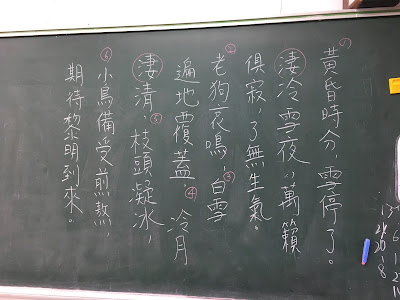 黃昏時分，雪停了。
淒冷雪夜，萬籟
俱寂，了無生氣。
②老狗哀鳴，③白雪
遍地覆蓋。④冷月
淒清，⑤枝頭凝冰，
⑥小鳥備受煎熬，
期待黎明到來。